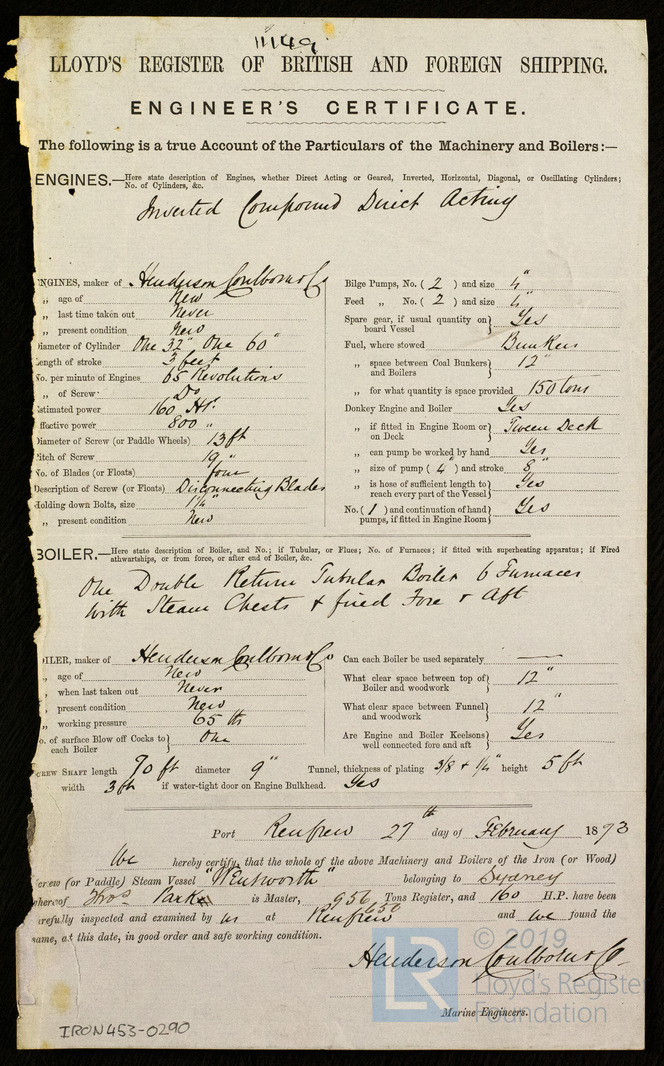 11149
LLOYD'S REGISTER OF BRITISH AND FOREIGN SHIPPING.
ENGINEER'S CERTIFICATE.
The following is a true Account of the Particulars of the Machinery and Boilers:—
ENGINES.—Here state description of Engines, whether Direct Acting or Geared, Inverted, Horizontal, Diagonal, or Oscillating Cylinders;
No. of Cylinders, &c.
Inverted Compound Direct Acting
NGINES, maker of Henderson Coulborn & Co
„ age of New
„ last time taken out Never
„ present condition New
Diameter of Cylinder One 32" One 60"
Length of stroke 3 feet
No. per minute of Engines 65 Revolutions
„ of Screw Do
Estimated power 160 HP.
Effective power 800 "
Diameter of Screw (or Paddle Wheels) 13 ft
Pitch of Screw 19 "
No. of Blades (or Floats) four
Description of Screw (or Floats) Disconnecting Blades
Holding down Bolts, size 1¼"
„ present condition New
Bilge Pumps, No. ( 2 ) and size 4"
Feed „ No. ( 2 ) and size 4"
Spare gear, if usual quantity on board Vessel} Yes
Fuel, where stowed Bunkers
„ space between Coal Bunkers and Boilers} 12"
„ for what quantity is space provided 150 tons
Donkey Engine and Boiler Yes
„ if fitted in Engine Room or on Deck} Tween Deck
„ can pump be worked by hand Yes
„ size of pump ( 4" ) and stroke 8"
„ is hose of sufficient length to reach every part of the Vessel} Yes
No. ( 1 ) and continuation of hand pumps, if fitted in Engine Room} Yes
BOILER.—Here state description of Boiler, and No.; if Tubular, or Flues; No. of Furnaces; if fitted with superheating apparatus; if Fired
athwartships, or from force, or after end of Boiler, &c.
One Double Return Tubular Boiler 6 Furnaces
with Steam Chests & fired Fore & Aft
OILER, maker of Henderson Coulborn & Co
„ age of New
„ when last taken out Never
„ present condition New
„ working pressure 65 lb
No. of surface Blow off Cocks to each Boiler} One
Can each Boiler be used separately —
What clear space between top of Boiler and woodwork} 12"
What clear space between Funnel and woodwork} 12"
Are Engine and Boiler Keelsons well connected fore and aft} Yes
SCREW SHAFT length 70 ft diameter 9" Tunnel, thickness of plating 3/8 & 1/4" height 5 ft
width 3 ft if water-tight door on Engine Bulkhead. Yes
Port Renfrew 27th day of February 1893
We hereby certify, that the whole of the above Machinery and Boilers of the Iron (or Wood)
Screw (or Paddle) Steam Vessel "Wentworth" belonging to Sydney
whereof Thos Parke is Master, 956 Tons Register, and 160 H.P. have been
656
carefully inspected and examined by us at Renfrew and we found the
same, at this date, in good order and safe working condition.
Henderson Coulborn & Co
Marine Engineers.
IRON453-0290
LR
© 2019
Lloyd's Register
Foundation